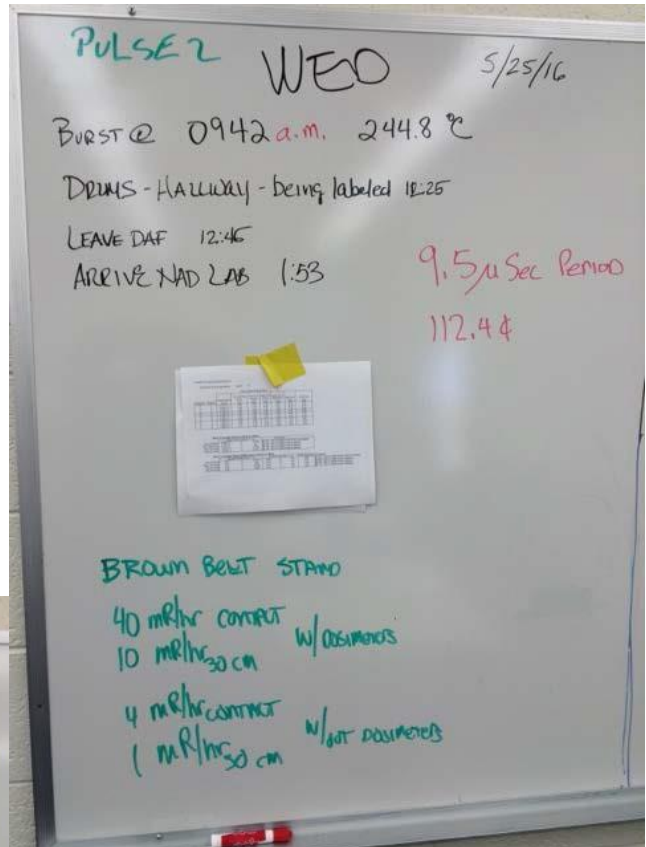 PULSE 2
WED
5/25/16
BURST @ 0942 a.m. 244.8 °C
DRUMS - HALLWAY - being labeled 12:25
LEAVE DAF 12:46
ARRIVE NAD LAB 1:53
9.5 µ Sec PERIOD
112.4 ¢
BROWN BELT STAND
40 mR/hr CONTACT
10 mR/hr 30 cm
W/ DOSIMETERS
4 mR/hr CONTACT
1 mR/hr 30 cm
W/OUT DOSIMETERS